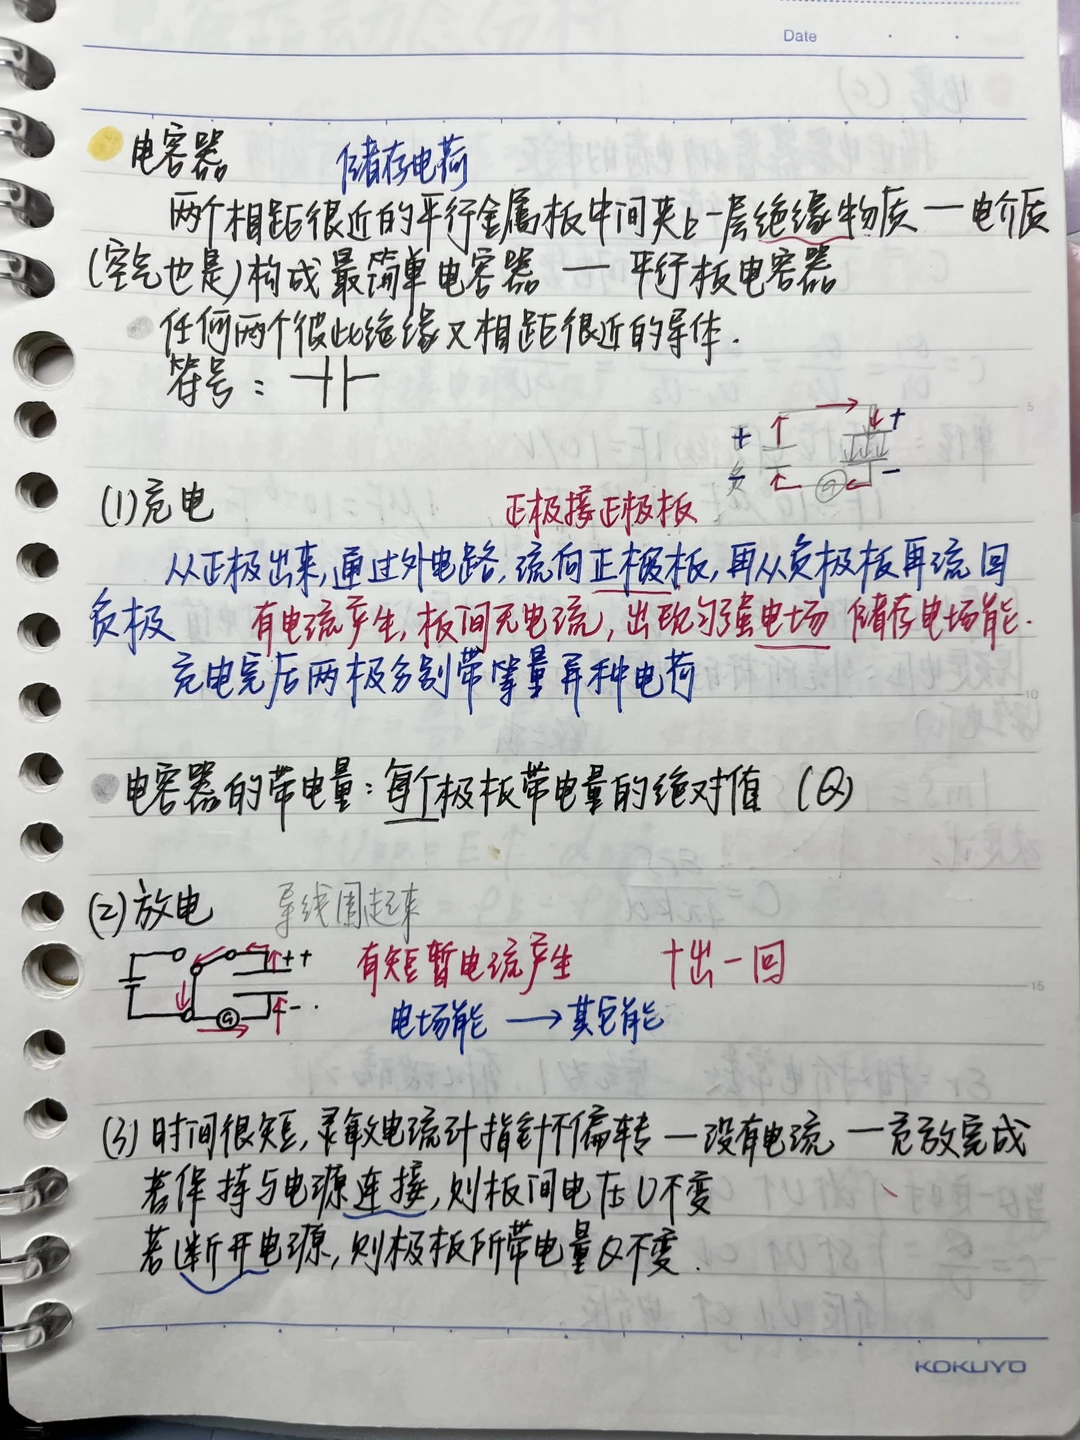 Date
电容器 储存电荷
两个相距很近的平行金属板中间夹上一层绝缘物质 — 电介质
(空气也是)构成最简单电容器 — 平行板电容器
任何两个彼此绝缘又相距很近的导体.
符号:
+ +
负 G −
(1)充电 正极接正极板
从正极出来,通过外电路,流向正极板,再从负极板再流回
负极 有电流产生,板间无电流,出现匀强电场 储存电场能.
充电完后两极分别带等量异种电荷
电容器的带电量:每个极板带电量的绝对值 (Q)
(2)放电 导线围起来
++
有短暂电流产生 +出−回
G −
电场能 → 其它能
(3)时间很短,灵敏电流计指针不偏转 — 没有电流 — 充放完成
若保持与电源连接,则板间电压U不变
若断开电源,则极板所带电量Q不变.
5
10
15
KOKUYO